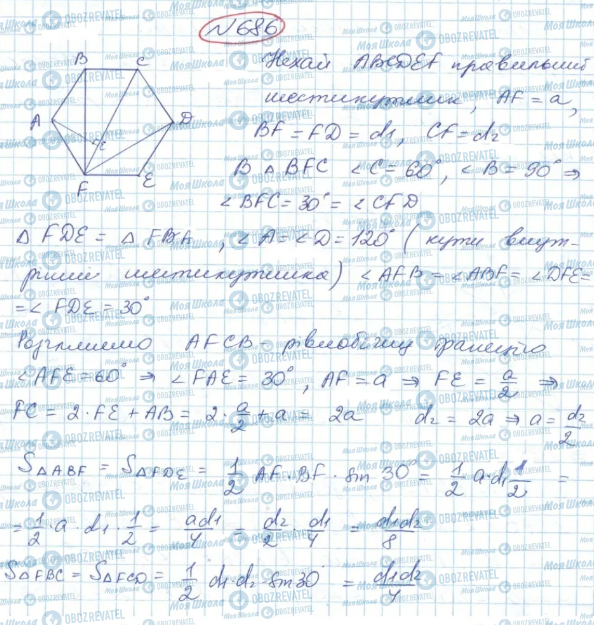 №686
B C
A D
F E
Нехай ABCDEF правильний
шестикутник, AF = a,
BF = FD = d₁, CF = d₂
В △ BFC ∠C = 60°, ∠B = 90° ⇒
∠BFC = 30° = ∠CFD
△ FDE = △ FBA, ∠A = ∠D = 120° (кути внут-
рішні шестикутника) ∠AFB = ∠ABF = ∠DFE =
= ∠FDE = 30°
Розглянемо AFCB - рівнобічну трапецію
∠AFE = 60° ⇒ ∠FAE = 30°, AF = a ⇒ FE = a/2 ⇒
FC = 2·FE + AB = 2·a/2 + a = 2a d₂ = 2a ⇒ a = d₂/2
S△ABF = S△FDE = 1/2 AF·BF·sin 30° = 1/2 a·d₁ 1/2 =
= 1/2·a·d₁·1/2 = ad₁/4 = d₂/2·d₁/4 = d₁d₂/8
S△FBC = S△FCD = 1/2 d₁·d₂·sin 30° = d₁d₂/4
МояШкола OBOZREVATEL